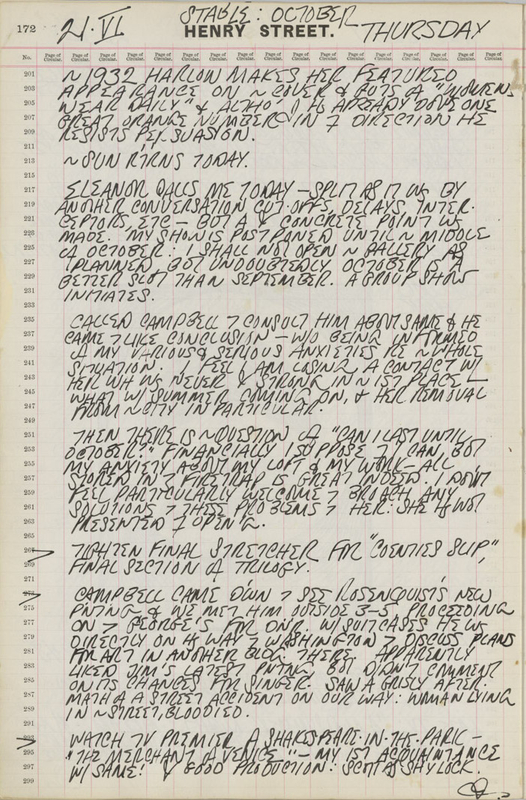 172 21·VI STABLE: OCTOBER THURSDAY
HENRY STREET.
No. Page of Circular. Page of Circular. Page of Circular. Page of Circular. Page of Circular. Page of Circular. Page of Circular. Page of Circular. Page of Circular. Page of Circular. Page of Circular. Page of Circular.
201 ~ 1932 HARLOW MAKES HER FEATURED
203 APPEARANCE ON ~ COVER & GUTS OF "WOMENS
205 WEAR DAILY" & ALTHO' HAS ALREADY DONE ONE
207 GREAT ORANGE NUMBER IN DIRECTION HE
209 RESISTS PERSUASION.
211
213 ~ SUN RTRNS TODAY.
215
217 ELEANOR CALLS ME TODAY – SPLIT AS IT WS BY
219 ANOTHER CONVERSATION CUT-OFFS, DELAYS, INTER-
221 CEPTORS, ETC – BUT A CONCRETE POINT WS
223 MADE. MY SHOW IS POSTPONED UNTIL ~ MIDDLE
225 OF OCTOBER. I SHALL NOT OPEN ~ GALLERY AS
227 PLANNED BUT UNDOUBTEDLY OCTOBER IS A
229 BETTER SLOT THAN SEPTEMBER. A GROUP SHOW
231 INITIATES.
233
235 CALLED CAMPBELL 7 CONSULT HIM ABOUT SAME & HE
237 CAME 7 LIKE CONCLUSION – W/O BEING INFORMED
239 OF MY VARIOUS & SERIOUS ANXIETIES RE ~ WHOLE
241 SITUATION. I FEEL I AM LOSING A CONTACT W/
243 HER WH WS NEVER STRONG IN ~ 1ST PLACE –
245 WHAT W/ SUMMER COMING ON, & HER REMOVAL
247 FROM ~ CITY IN PARTICULAR.
249
251 THEN THERE IS ~ QUESTION OF "CAN I LAST UNTIL
253 OCTOBER?" FINANCIALLY I SUPPOSE I CAN, BUT
255 MY ANXIETY ABOUT MY LOFT & MY WORK – ALL
257 STORED IN FIRETRAP IS GREAT INDEED. I DON'T
259 FEEL PARTICULARLY WELCOME 7 BROACH ANY
261 SOLUTIONS 7 THESE PROBLEMS 7 HER: SHE NOT
263 PRESENTED OPENING.
265
267 TIGHTEN FINAL STRETCHER FOR "COENTIES SLIP,"
269 FINAL SECTION OF TRILOGY.
271
273 CAMPBELL CAME DOWN 7 SEE ROSENQUIST'S NEW
275 PNTING & WE MET HIM OUTSIDE 3-5, PROCEEDING
277 ON 7 GEORGE'S FOR DNR. W/ SUITCASES HE WS
279 DIRECTLY ON WAY 7 WASHINGTON 7 DISCUSS PLANS
281 FOR ART IN ANOTHER BLDG THERE. APPARENTLY
283 LIKED JIM'S LATEST PNTNG BUT DIDN'T COMMENT
285 ON ITS CHANCES FOR SINGER. SAW A GRISLY AFTER-
287 MATH OF A STREET ACCIDENT ON OUR WAY: WOMAN LYING
289 IN ~ STREET, BLOODIED.
291
293 WATCH TV PREMIER OF SHAKESPEARE-IN-THE-PARK –
295 "THE MERCHANT OF VENICE" – MY 1ST ACQUAINTANCE
297 W/ SAME! GOOD PRODUCTION: SCOTT AS SHYLOCK.
299